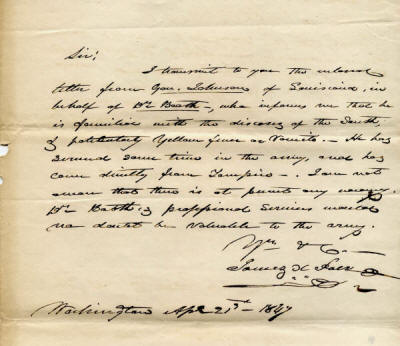 Sir;
I transmit to you the enclosed
letter from Gov. Johnson of Louisiana, in
behalf of Dr Booth, who informs me that he
is familiar with the diseases of the South
& particularly Yellow fever or Vomito. He has
served some time in the army, and has
come directly from Tampico. I am not
aware that there is at present any vacancy.
Dr Booth's professional services would
no doubt be valuable to the army.
Yrs &c
James K Polk
Washington Apl 21st 1847